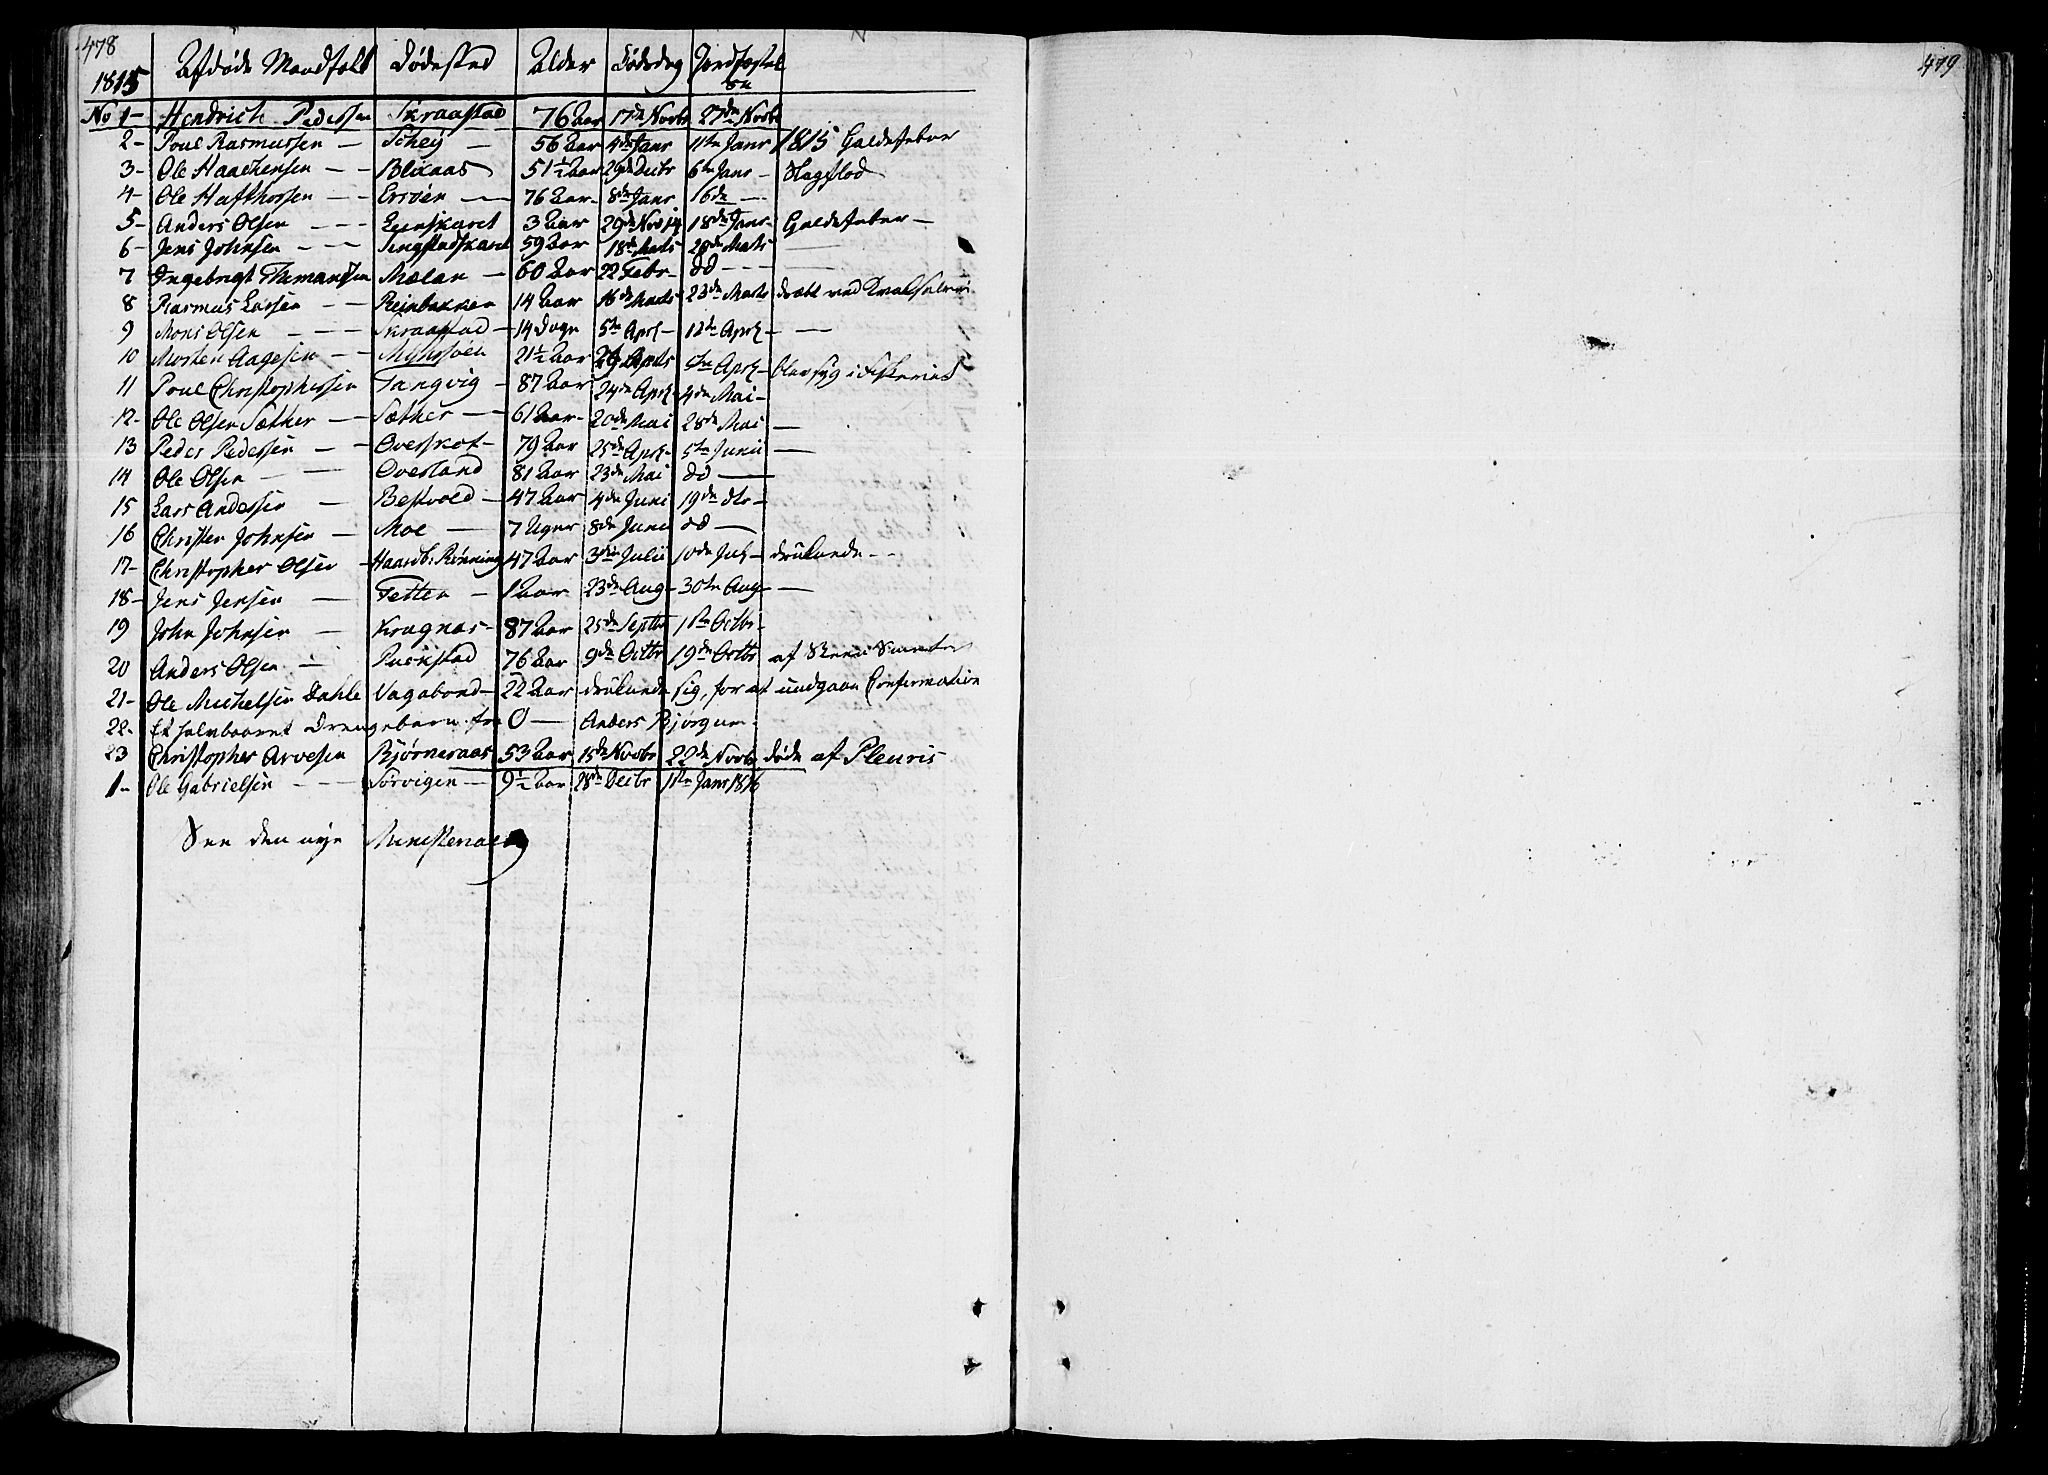 478
479
1815 Afdøde Mandfolk Dødested Alder Dødsdag Jordfæstelsen
No 1 - Hendrich Pedersen Skraastad 76 Aar 17de Novbr 27de Novbr
2 - Poul Rasmussen - Schey - 56 Aar 4de Janr 11te Janr 1815 Galdefeber
3 - Ole Haachensen - - Blixaas 51½ Aar 29de Decbr 6te Janr - Slagflod
4 - Ole Hafthorsen - - - 76 Aar - 8de Janr 16de -
5 - Anders Olsen - - - 3 Aar 29de Nov 14 18de Janr - Galdefeber -
6 - Jens Johnsen - - - Tengstadskaret 59 Aar 18de Marts 28de Marts -
7 Ingebrigt Mælan - 60 Aar 22 Febr - dd - - - -
8 Rasmus Larsen - Reinbakken 14 Aar 16de Marts 23de Marts dræbt ved
9 Mons Olsen - - - Skraastad - 14 Dage 5te Apr - 12te Apr - -
10 Morten Aagesen - - 21½ Aar Marts Apr - blev syg i fiskeriet
11 Poul Christophersen Tangvig - 87 Aar 24de Apr 4de Mai -
12 - Ole Olsen Sæther - - Sæther - - 61 Aar - 20de Mai 28de Mai -
13 Peder Pedersen - - Overskot - 79 Aar 25de Apr - 5te Junii -
14 Ole Olsen - - Overland 81 Aar 23de Mai dd -
15 Lars Andersen - Bestvold - 47 Aar 4de Juni 19de ds -
16 Christen Johnsen - Moe - 7 Uger 8de Juni dd -
17 - Christopher Olsen - Haardb: Rønning 47 Aar 3die Julii 10de Jul - druknede - -
18 - Jens Jensen - Tetten - 1 Aar 23de Aug - 30te Aug - -
19 John Johnsen - Kragnes - 87 Aar 25de Septbr 1ste Octbr -
20 Anders Olsen - 76 Aar 9de Octbr 19de Octbr af
21 - Ole Michelsen Dahle Vagabond - 22 Aar druknede sig, for at undgaae Confirmation
22 - Et halvbaaret Drengebarn fra O - Anders Bjørgum -
23 Christopher Arvesen Bjørneraas 53 Aar 15de Novbr 22de Novbr døde af Pleuris
1 - Ole Gabrielsen - - - Sørvigen - 9½ Aar 28de Decbr 1ste Janr 1816
See den nye Ministerialbog